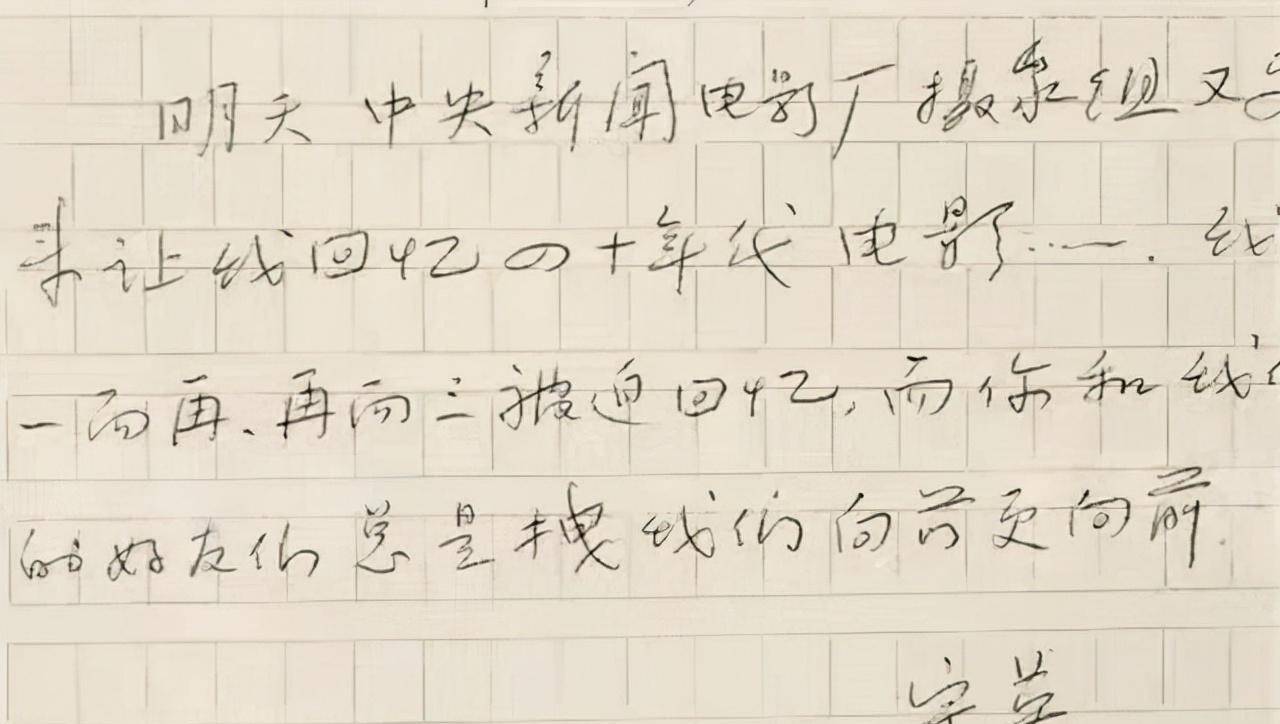 明天 中央新闻电影厂摄录组又
来让我回忆四十年代电影……. 我
一而再、再而三被迫回忆,而你和我
的好友们总是拽我们向前更向前.